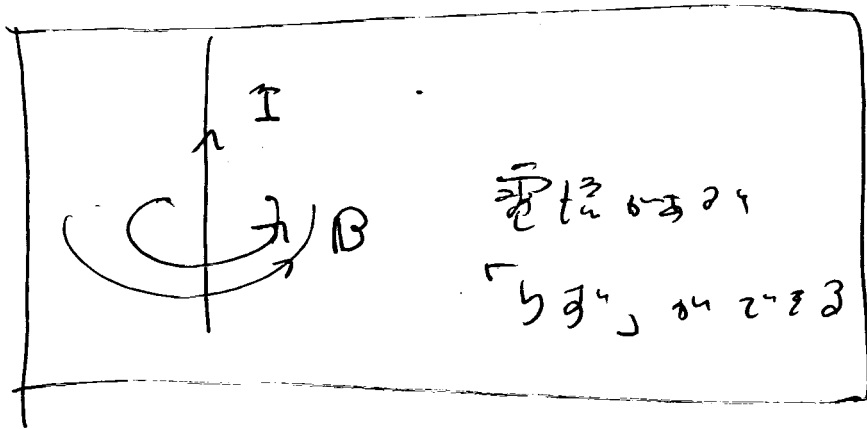 I
B
電流があると
「うず」ができる